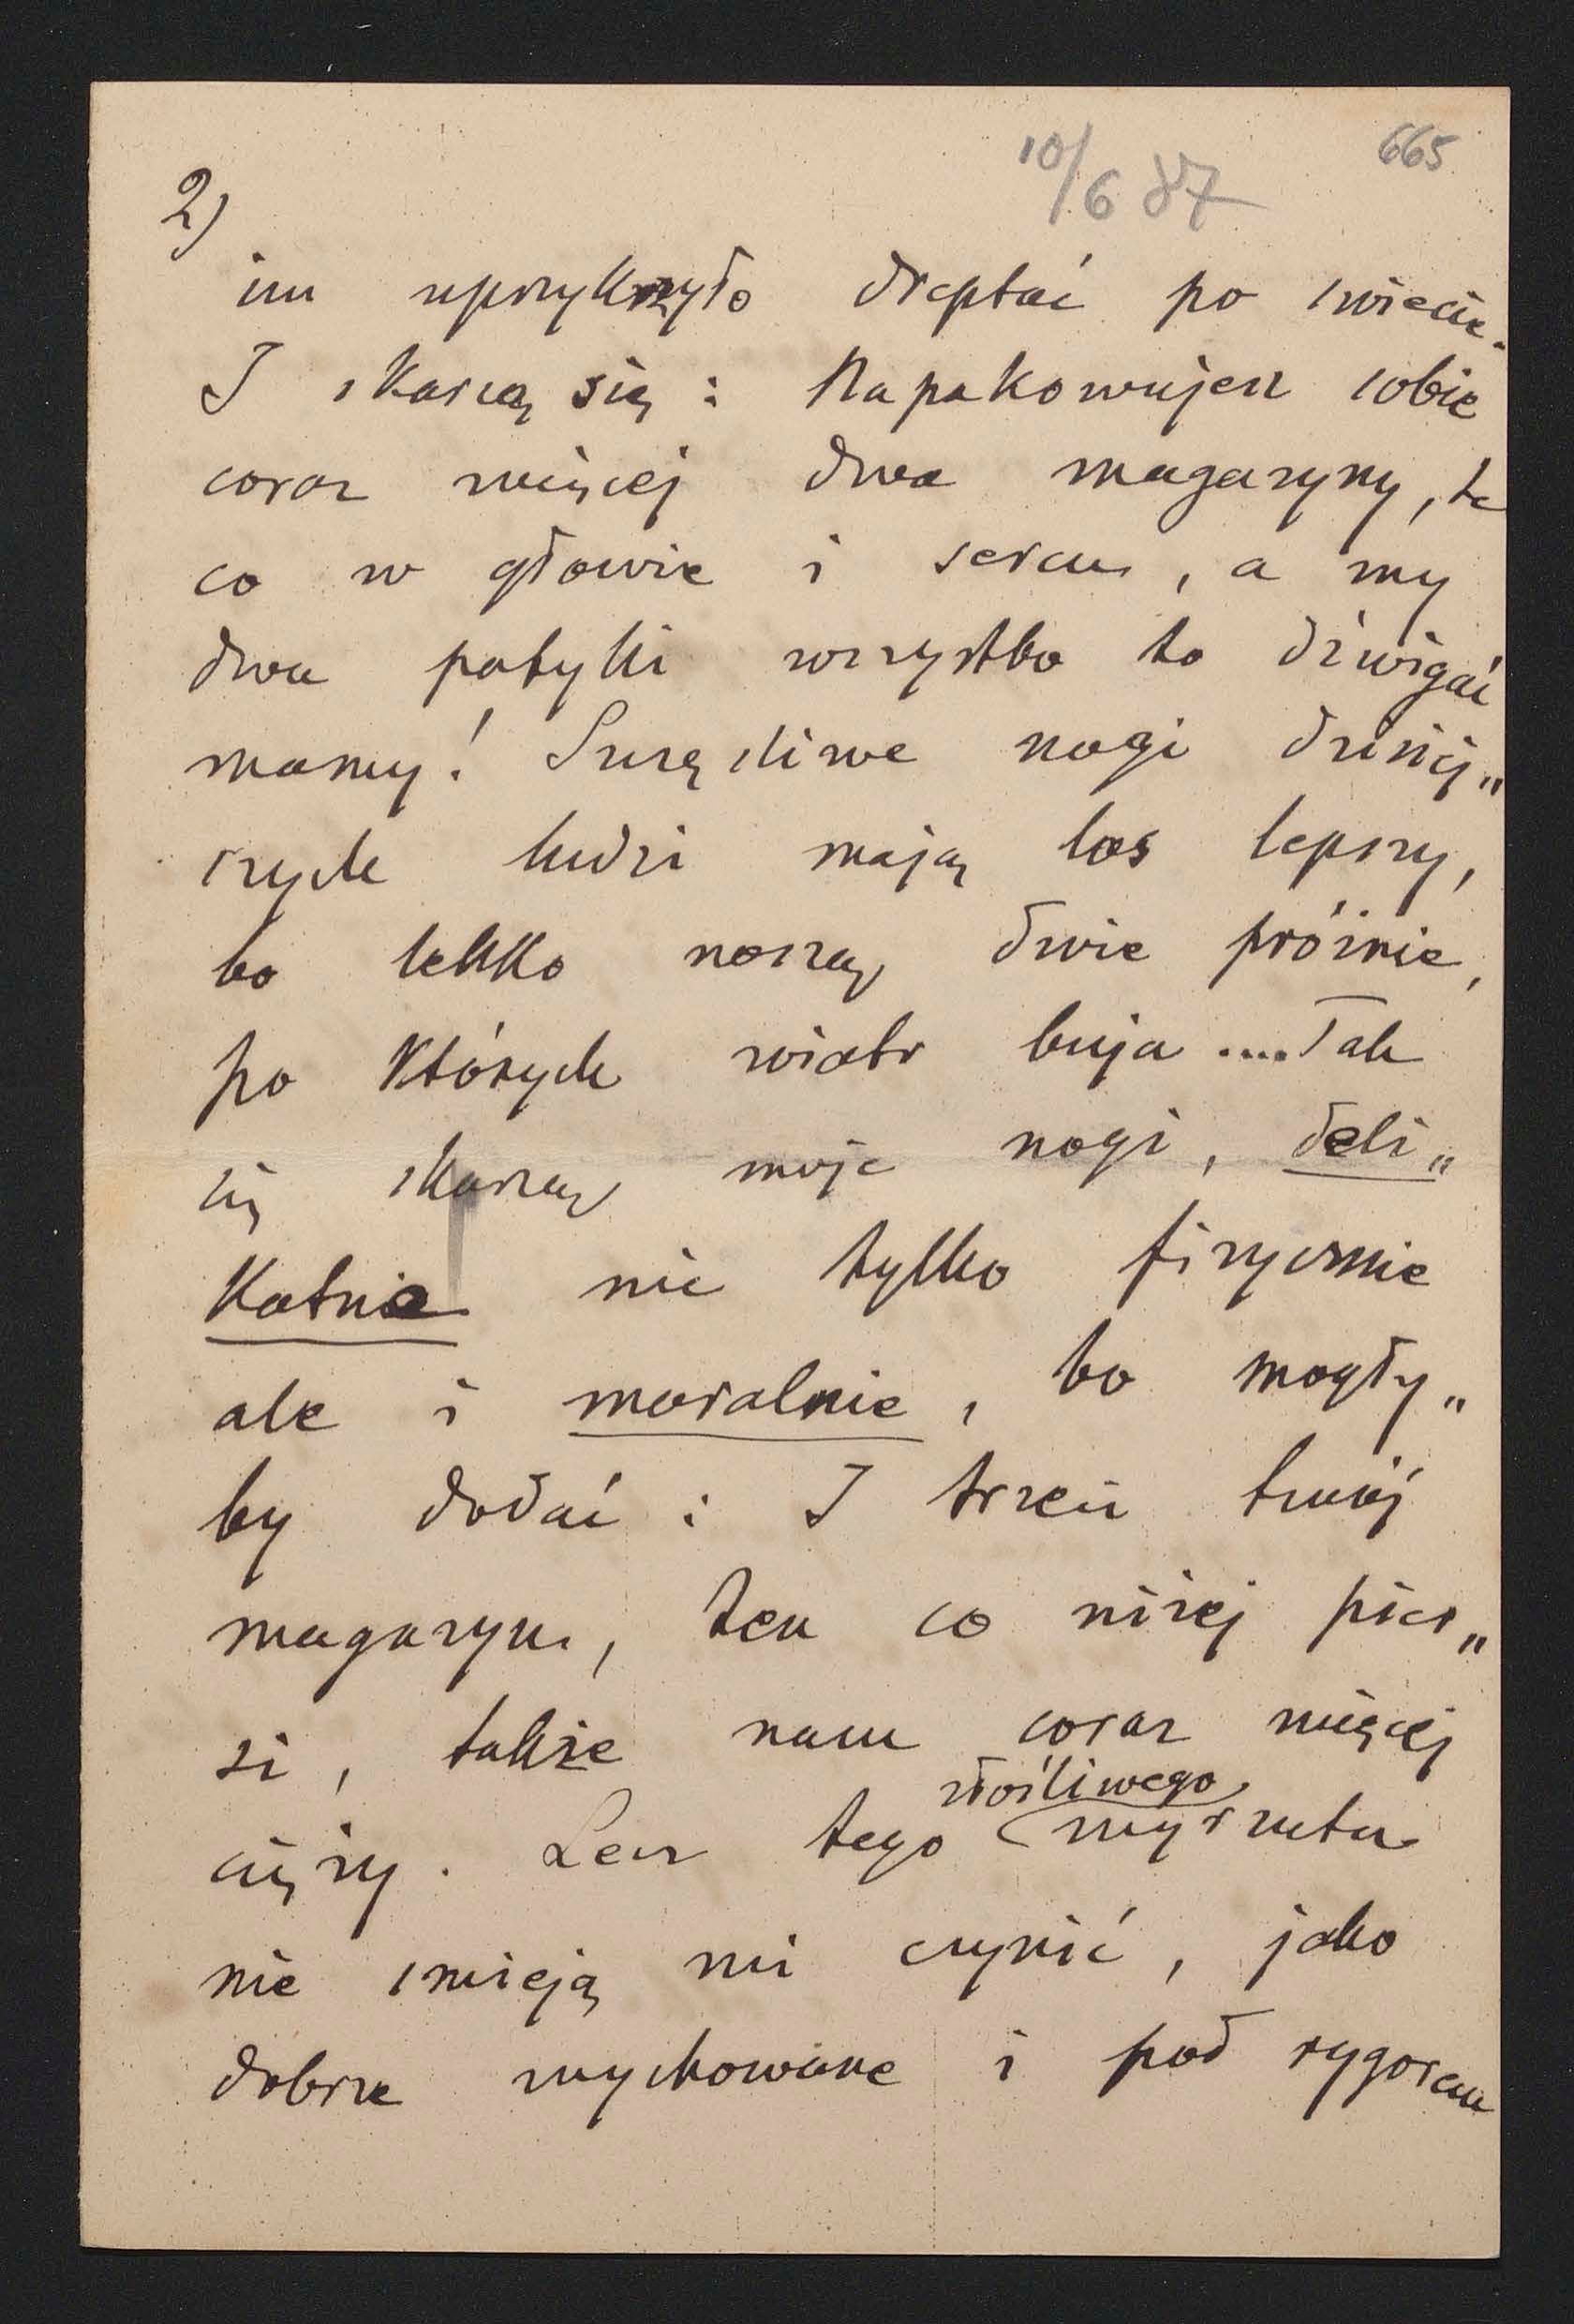 10/6 87
665
2)
im uprzykrzyło dreptać po świecie.
I skarżą się: Napakowujesz sobie
coraz więcej dwa magazyny, te
co w głowie i sercu, a my
dwa patyki wszystko to dźwigać
mamy! Szczęśliwe nogi dzisiej„
szych ludzi mają los lepszy,
bo lekko noszą dwie próżnie,
po których wiatr buja .... Tak
się skarżą moje nogi, deli„
katnie nie tylko fizycznie
ale i moralnie, bo mogły„
by dodać: I trzeci twój
magazyn, ten co niżej pier„
si, także nam coraz więcej
cięży. Lecz tego złośliwego wyrzutu
nie śmieją mi czynić, jako
dobrze wychowane i pod rygorem